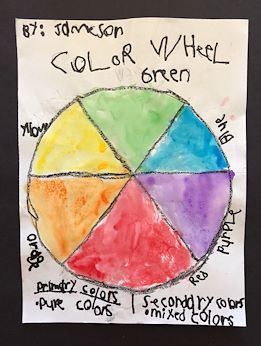 By: Jameson
COLOR WHEEL
Green
Yllow
Blue
purple
orage
Red
primary colors
• pure colors
Secondary colors
• mixed colors